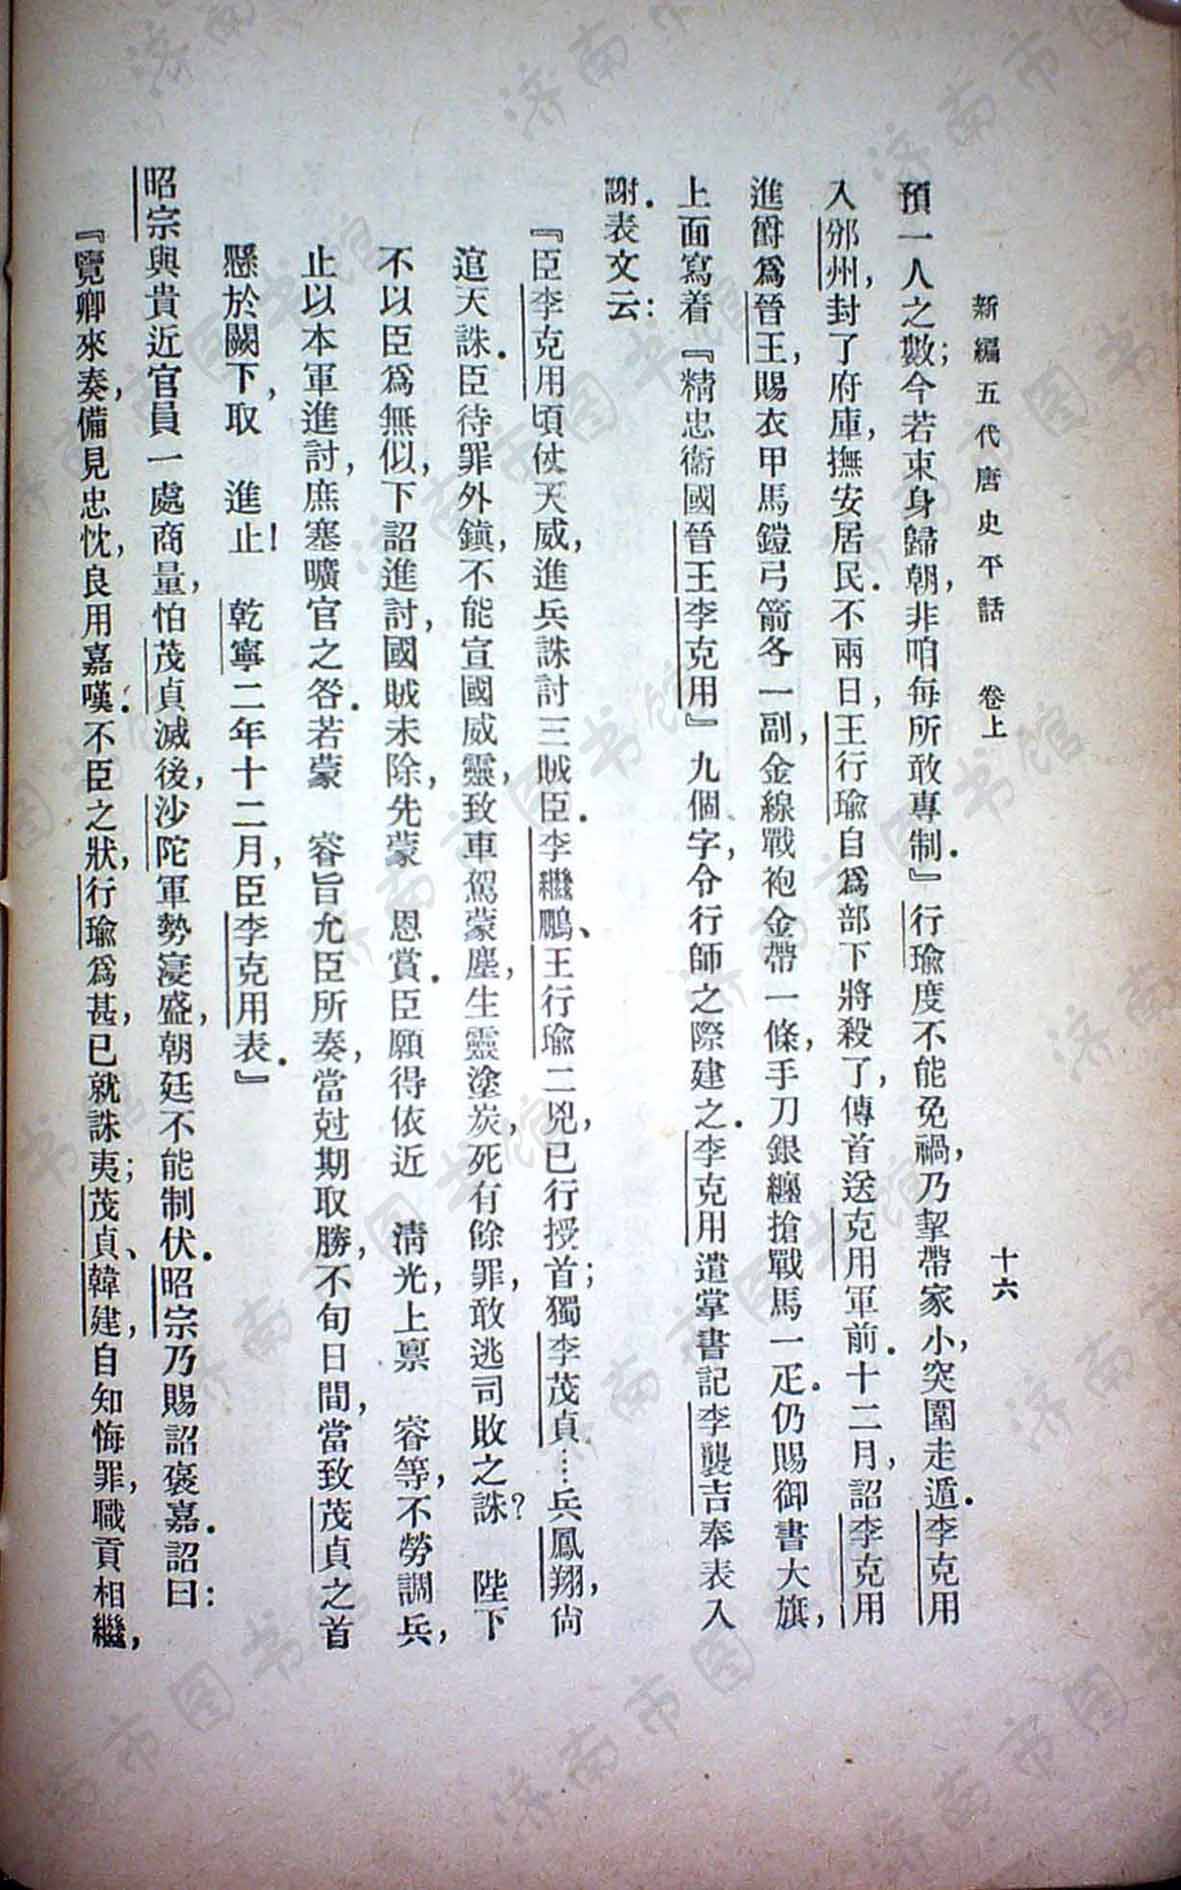 新編五代唐史平話　卷上　十六
預一人之數；今若束身歸朝，非咱每所敢專制．』行瑜度不能免禍，乃挈帶家小，突圍走遁．李克用
入邠州，封了府庫，撫安居民．不兩日，王行瑜自爲部下將殺了，傳首送克用軍前．十二月，詔李克用
進爵爲晉王，賜衣甲馬鎧弓箭各一副，金線戰袍金帶一條，手刀銀纏搶戰馬一疋．仍賜御書大旗，
上面寫着『精忠衞國晉王李克用』九個字，令行師之際建之．李克用遣掌書記李襲吉奉表入
謝．表文云：
『臣李克用頃仗天威，進兵誅討三賊臣．李繼鵬、王行瑜二兇，已行授首；獨李茂貞……兵鳳翔，尙
逭天誅．臣待罪外鎭，不能宣國威靈，致車駕蒙塵，生靈塗炭，死有餘罪，敢逃司敗之誅？　陛下
不以臣爲無似，下詔進討，國賊未除，先蒙　恩賞．臣願得依近　淸光，上禀　睿等，不勞調兵，
止以本軍進討，庶塞曠官之咎．若蒙　睿旨允臣所奏，當尅期取勝，不旬日間，當致茂貞之首
懸於闕下，取　進止！　乾寧二年十二月，臣李克用表．』
昭宗與貴近官員一處商量，怕茂貞滅後，沙陀軍勢寖盛，朝廷不能制伏．昭宗乃賜詔褒嘉．詔曰：
『覽卿來奏，備見忠忱，良用嘉嘆．不臣之狀，行瑜爲甚，已就誅夷；茂貞、韓建，自知悔罪，職貢相繼，
濟南市图书馆